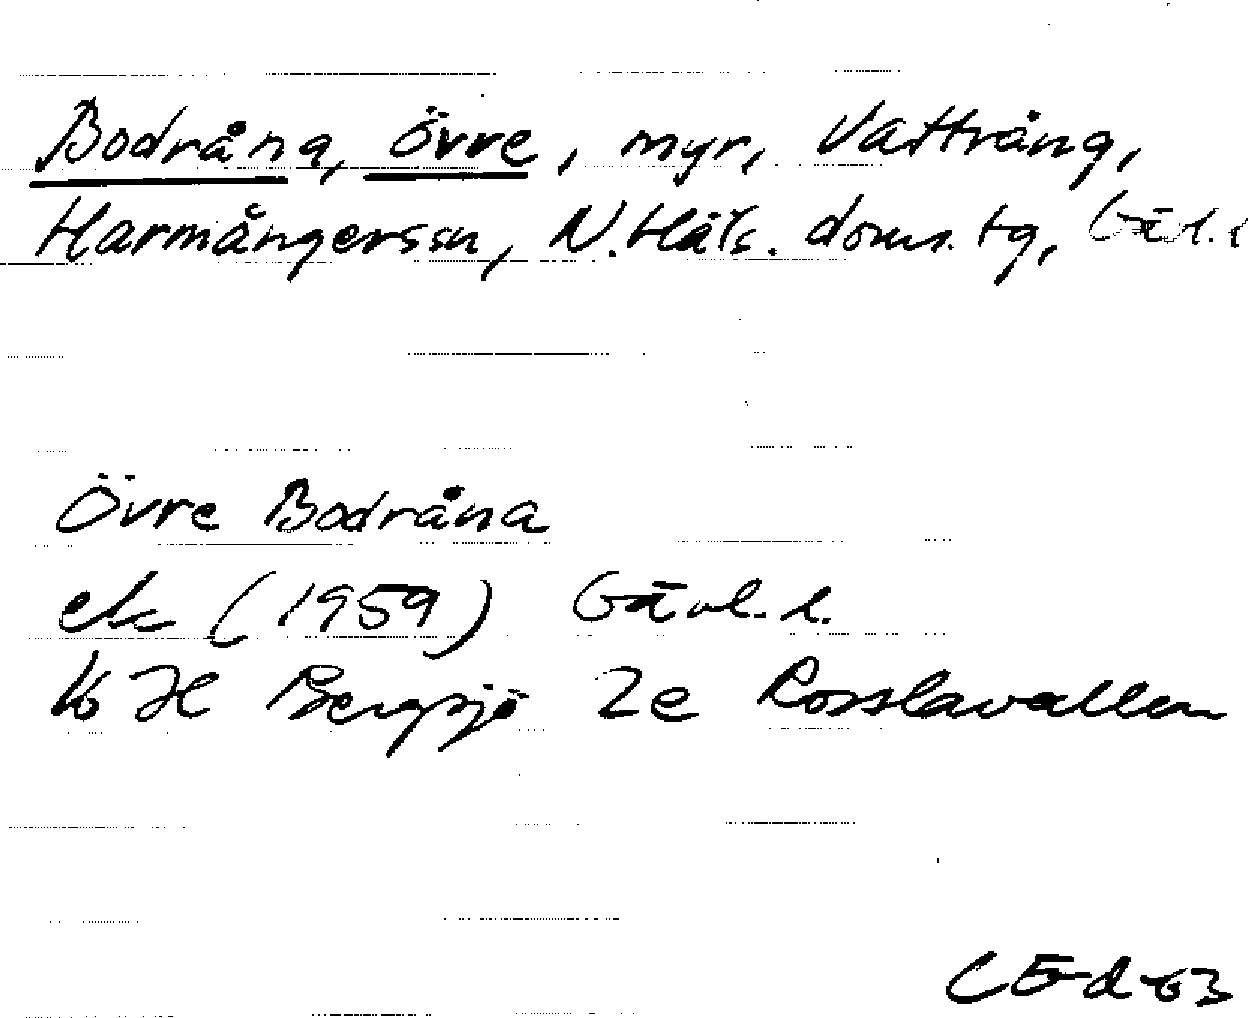 Bodråna, Övre, myr, Vattrång,
Harmångerssn, N. Häls. doms. tg, Gävl. l
Övre Bodråna
ek (1959) Gävl. l.
16 H Bergsjö 2e Rosslavallen
CEd-63